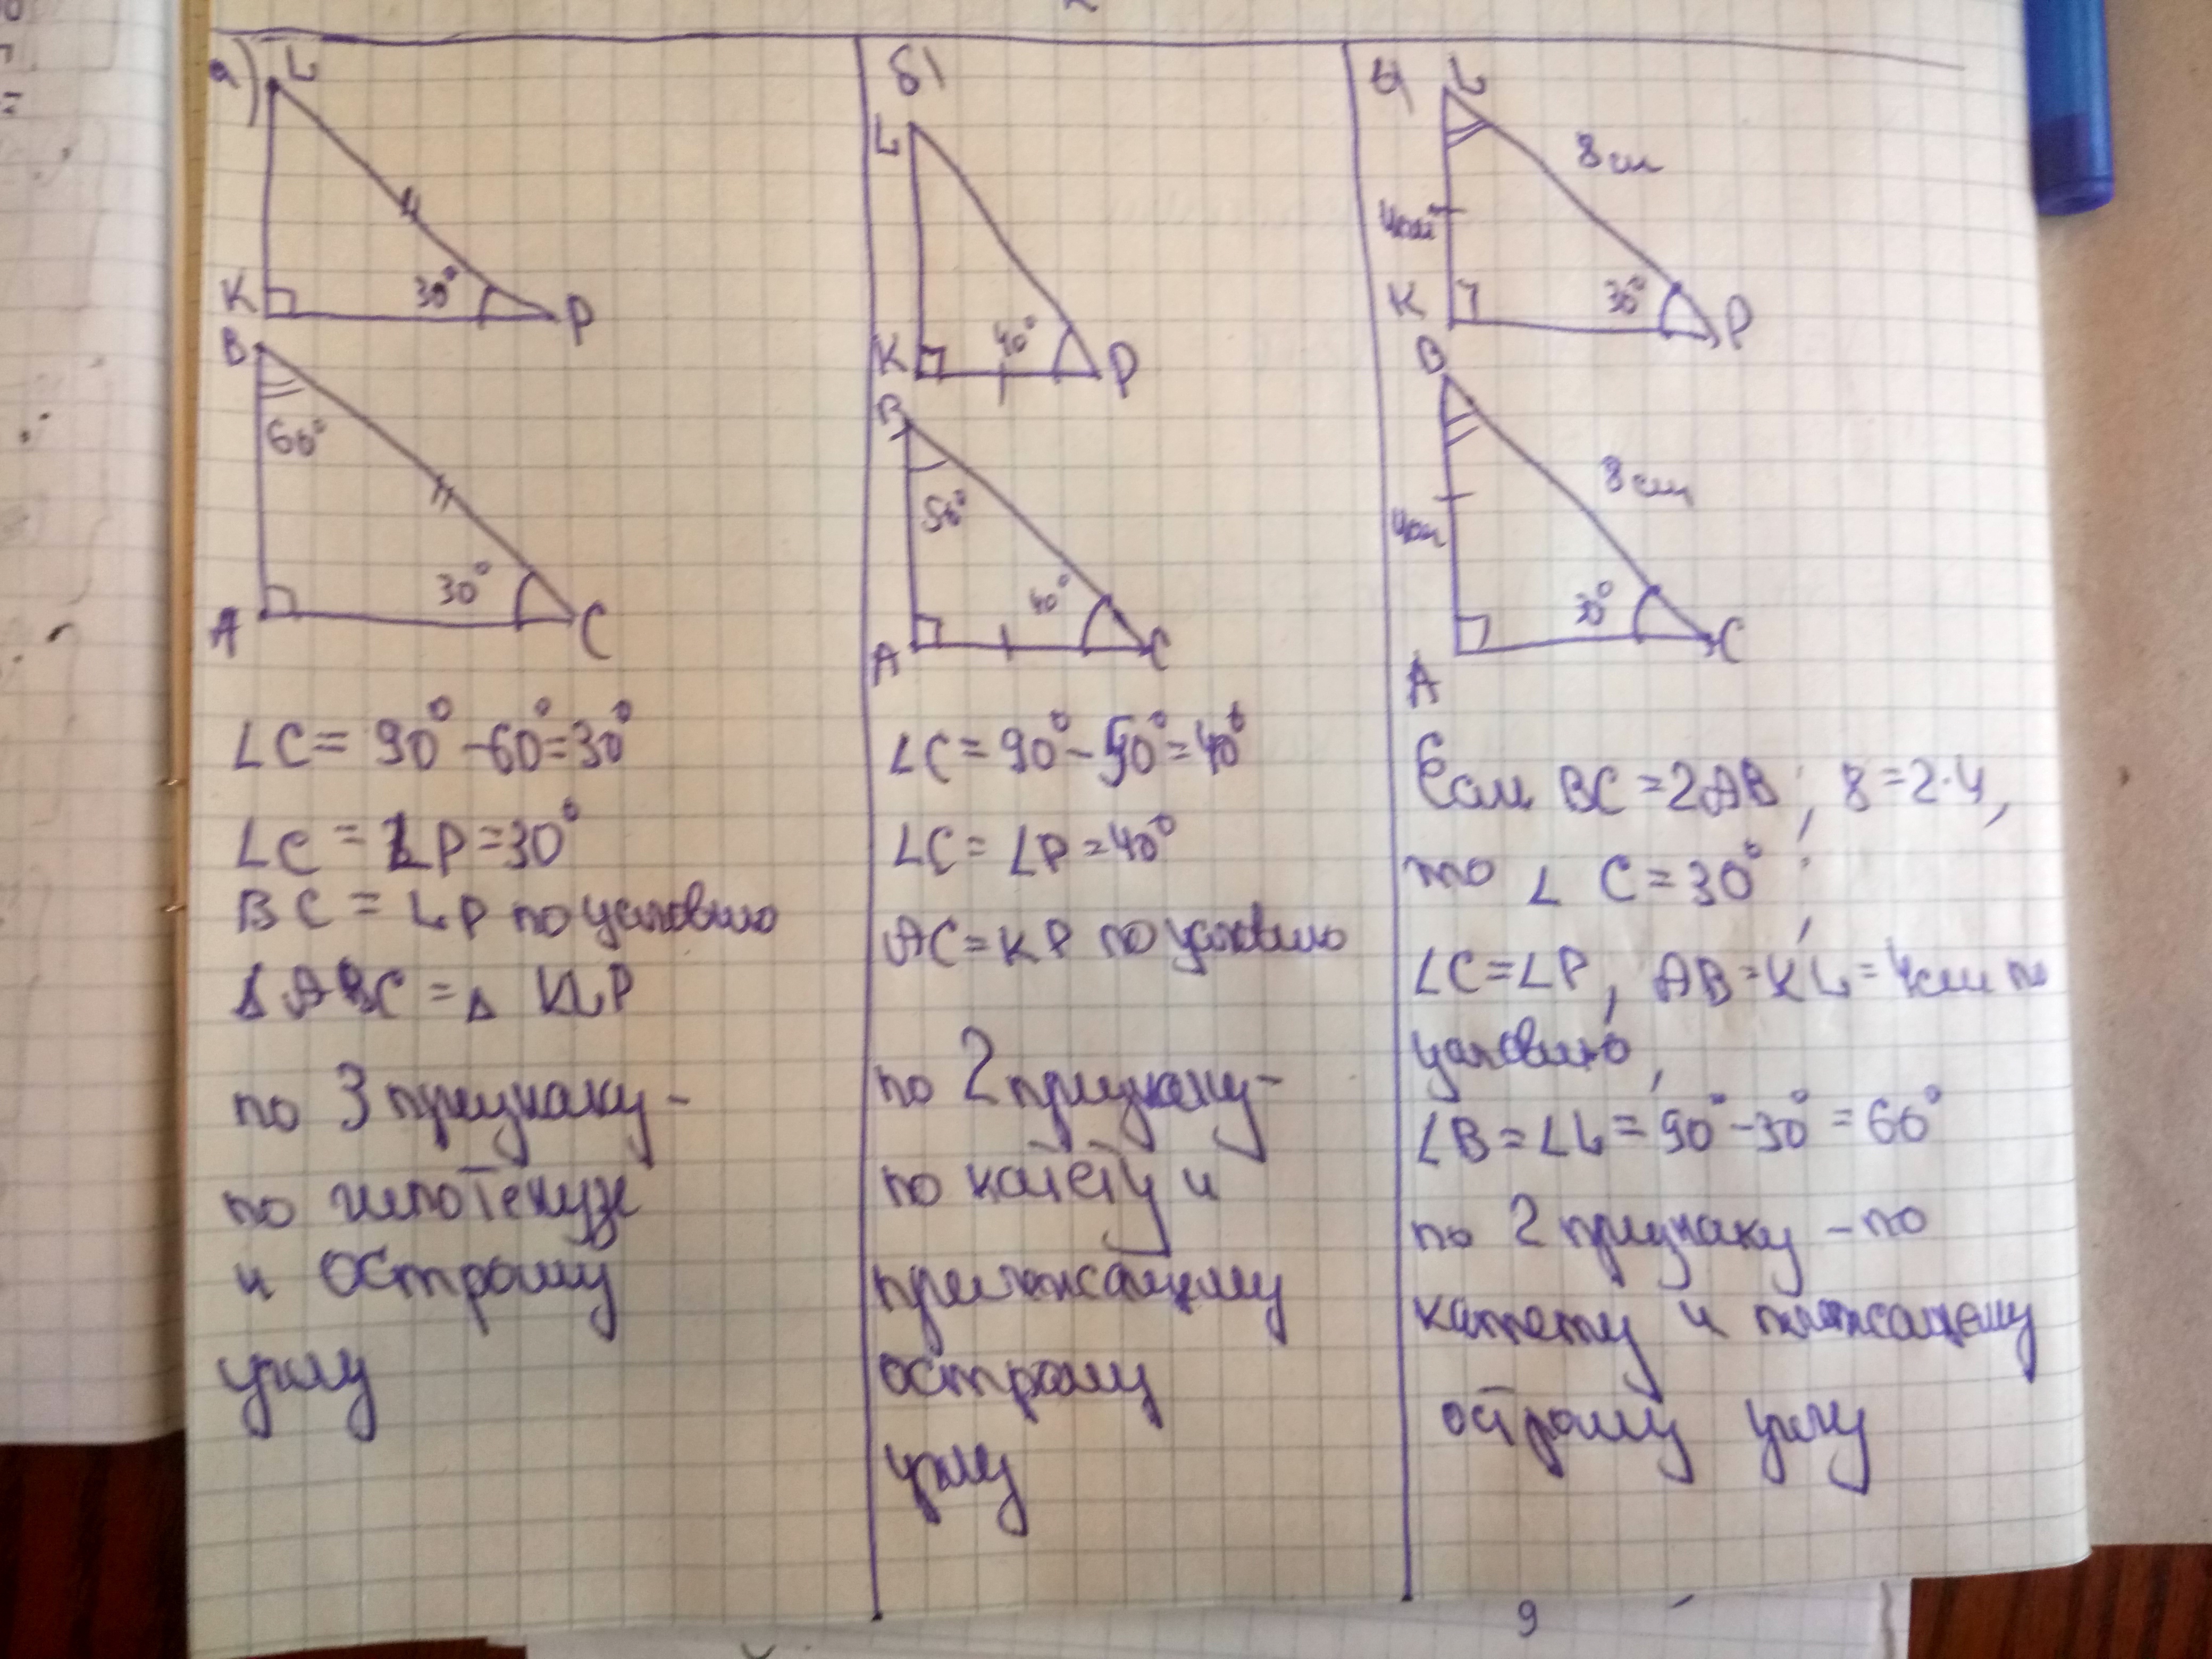 а)
L
K
30°
P
B
60°
A
30°
C
∠C = 90° - 60° = 30°
∠C = ∠P = 30°
BC = LP по условию
Δ ABC = Δ KLP
по 3 признаку -
по гипотенузе
и острому
углу
б)
L
K
40°
P
B
50°
A
40°
C
∠C = 90° - 50° = 40°
∠C = ∠P = 40°
AC = KP по условию
по 2 признаку -
по катету и
прилежащему
острому
углу
L
8 см
4 см
K
30°
P
B
8 см
4 см
30°
A
C
Если BC = 2AB; 8 = 2·4,
то ∠ C = 30°;
∠C = ∠P, AB = KL = 4см по
условию,
∠B = ∠L = 90° - 30° = 60°
по 2 признаку - по
катету и
острому углу
9